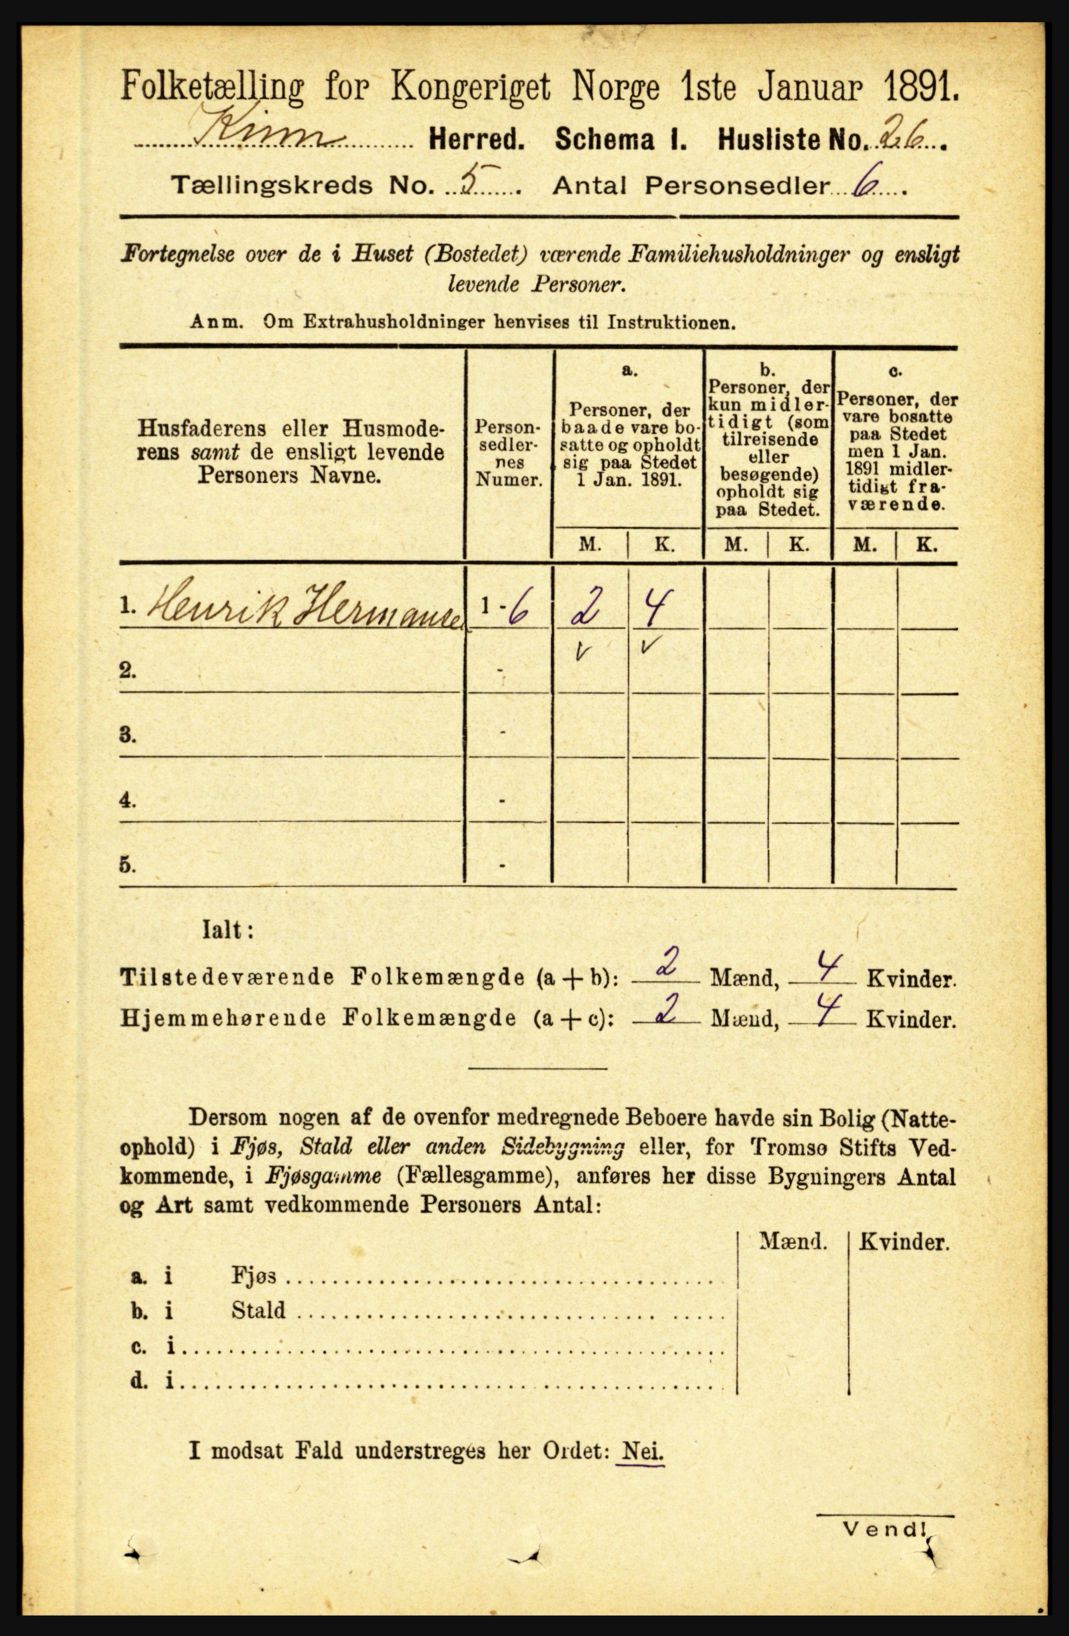 Folketælling for Kongeriget Norge 1ste Januar 1891.
Kinn Herred. Schema I. Husliste No. 26.
Tællingskreds No. 5. Antal Personsedler 6.
Fortegnelse over de i Huset (Bostedet) værende Familiehusholdninger og ensligt
levende Personer.
Anm. Om Extrahusholdninger henvises til Instruktionen.
Husfaderens eller Husmode-
rens samt de ensligt levende
Personers Navne.
Person-
sedler-
nes
Numer.
a.
Personer, der
baade vare bo-
satte og opholdt
sig paa Stedet
1 Jan. 1891.
b.
Personer, der
kun midler-
tidigt (som
tilreisende
eller
besøgende)
opholdt sig
paa Stedet.
c.
Personer, der
vare bosatte
paa Stedet
men 1 Jan.
1891 midler-
tidigt fra-
værende.
M. K. M. K. M. K.
1. Henrik Hermanse 1-6 2 4
2. - v v
3. -
4. -
5. -
Ialt:
Tilstedeværende Folkemængde (a+b): 2 Mænd, 4 Kvinder.
Hjemmehørende Folkemængde (a+c): 2 Mænd, 4 Kvinder.
Dersom nogen af de ovenfor medregnede Beboere havde sin Bolig (Natte-
ophold) i Fjøs, Stald eller anden Sidebygning eller, for Tromsø Stifts Ved-
kommende, i Fjøsgamme (Fællesgamme), anføres her disse Bygningers Antal
og Art samt vedkommende Personers Antal:
Mænd. Kvinder.
a. i Fjøs
b. i Stald
c. i
d. i
I modsat Fald understreges her Ordet: Nei.
Vend!